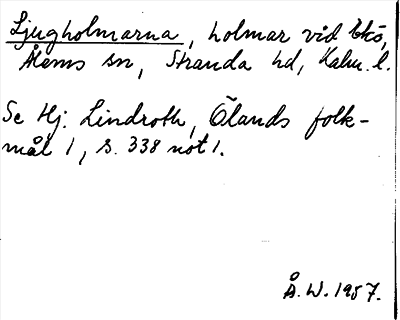 Ljugholmarna, holmar vid Ekö,
Ålems sn, Stranda hd, Kalm. l.
Se Hj. Lindroth, Ölands folk-
mål 1, s. 338 not 1.
Å. W. 1957.